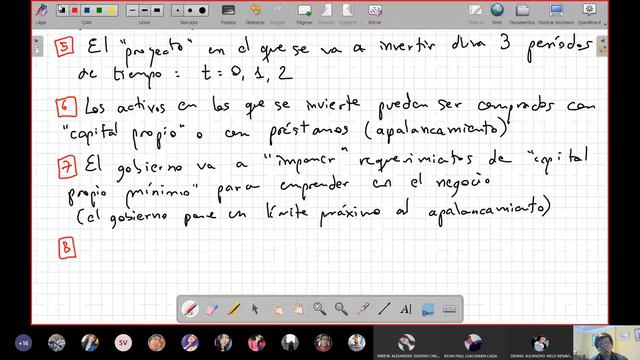 Lápiz
Color
Línea
Borrador
Fondos
Deshacer
Rehacer
Páginas
Anterior
Siguiente
Borrar página
Tablero
Web
Documentos
Mostrar escritorio
OpenBoard
5 El "proyecto" en el que se va a invertir dura 3 períodos
de tiempo: t = 0, 1, 2
6 Los activos en los que se invierte pueden ser comprados con
"capital propio" o con préstamos (apalancamiento)
7 El gobierno va a "imponer" requerimientos de "capital
propio mínimo" para emprender en el negocio
(el gobierno pone un límite máximo al apalancamiento)
8
+16
SV
MIREYA ALEXANDRA SUNTAXI CHA...
KEVIN PAUL LOACHAMIN CAIZA
DENNIS ALEJANDRO MELO BENAVI...